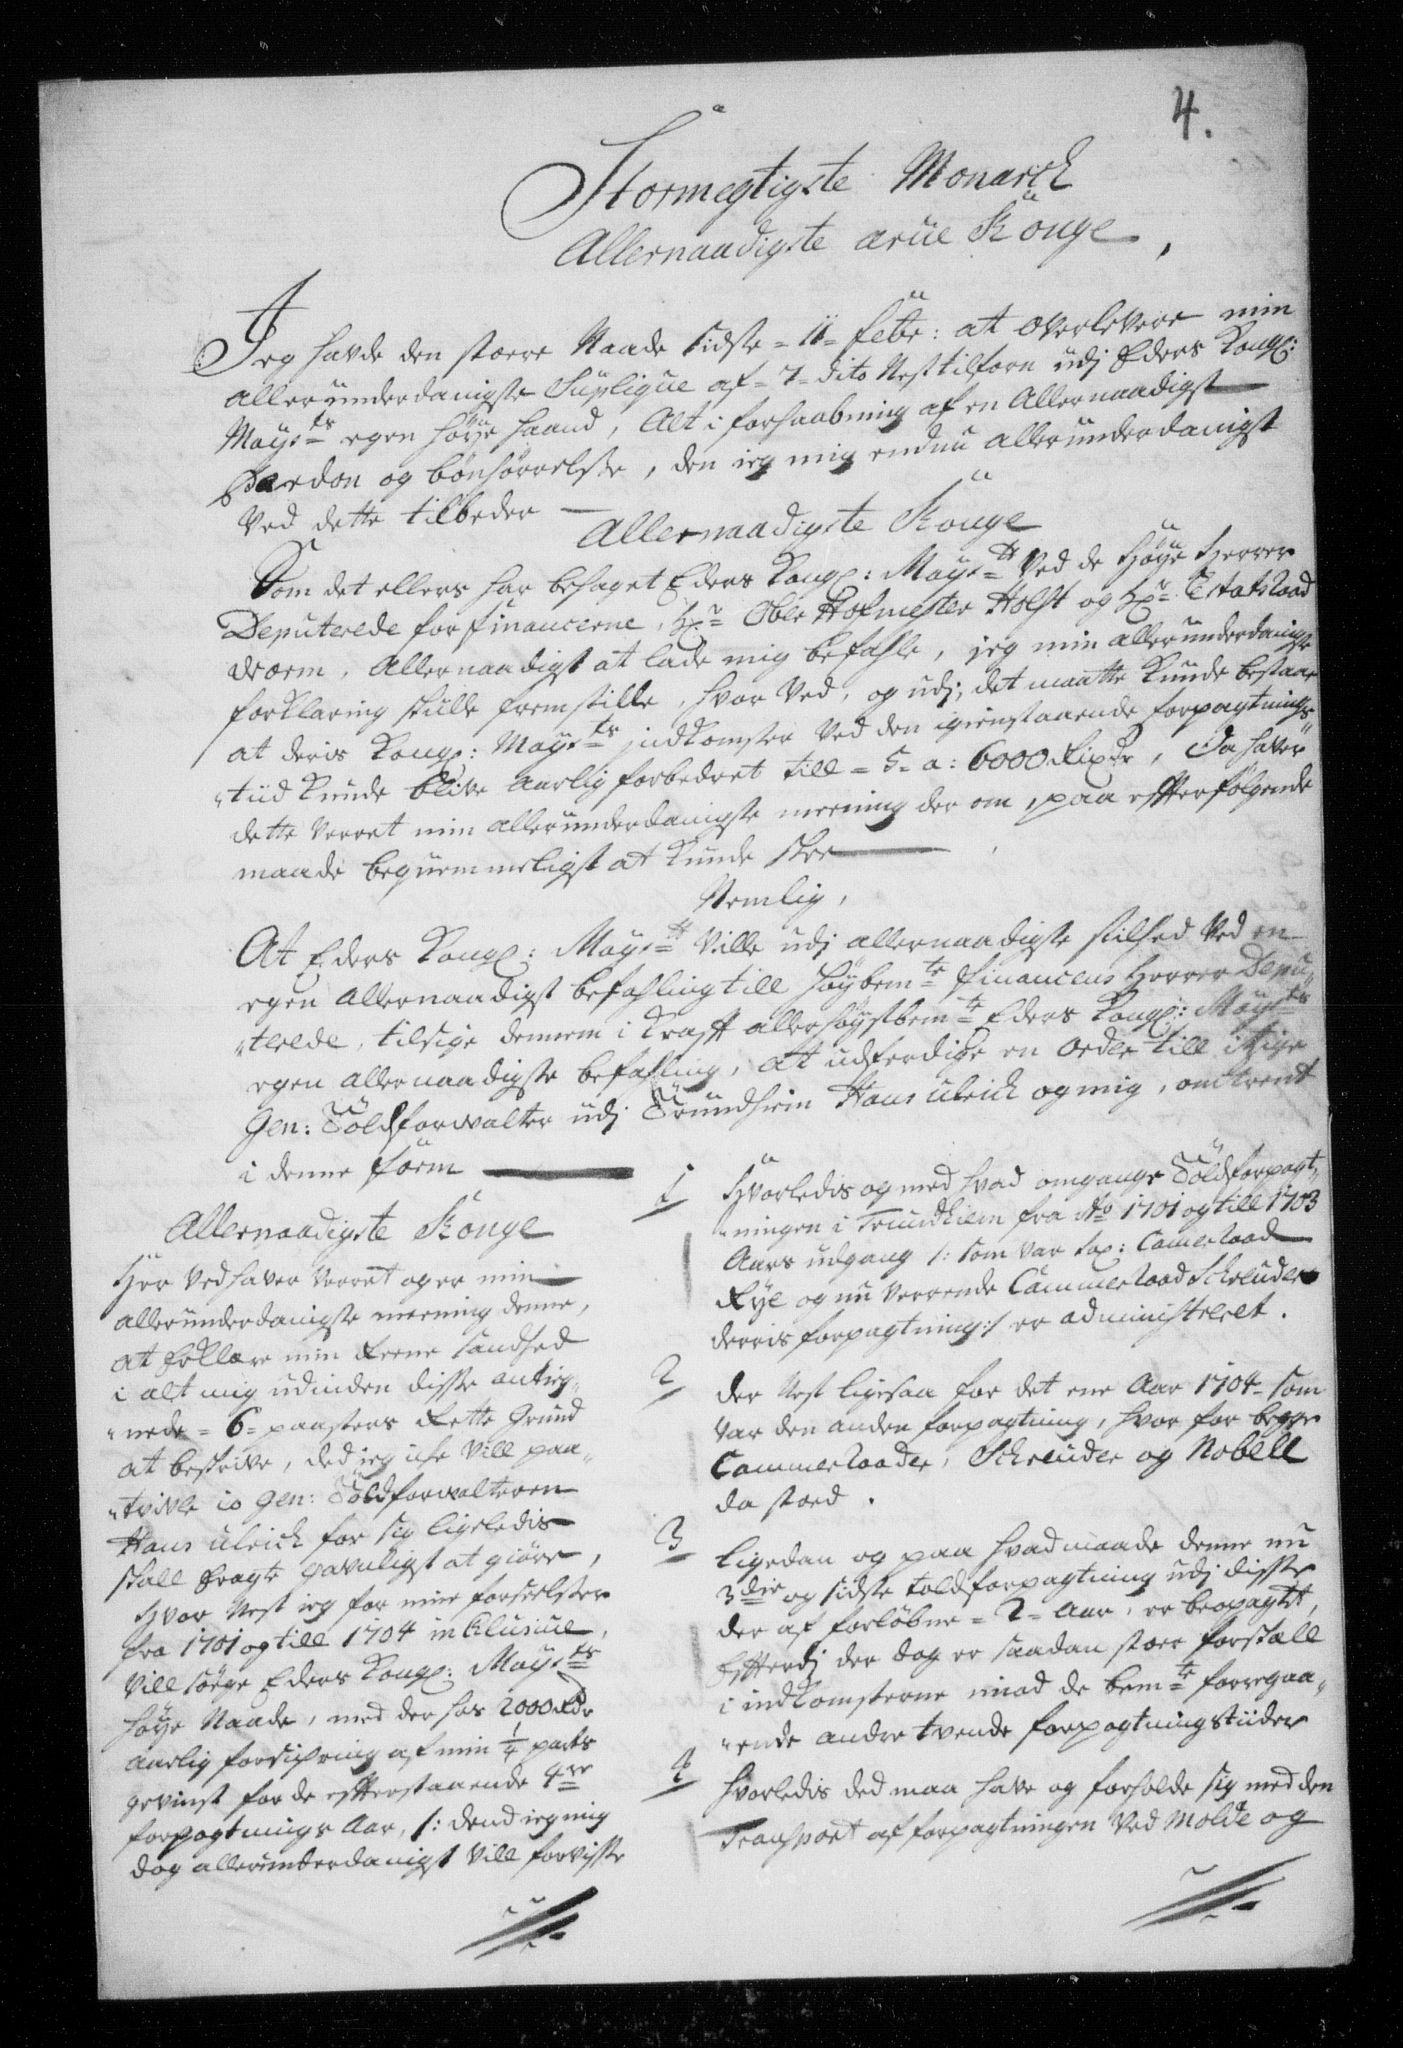 4.
Stormegtigste Monarch
Allernaadigste arfue Konge,
Jeg hafde den stoere Naade sidste = 11 = febr: at overlevere min
allerunderdanigste Suplique af = 7 = dito Nest tilforn udj Eders Kongl:
Mayts egen høye haand, Alt i forhaabning af en Allernaadigst
Pardon og bønhørrelsse, den ieg mig endnu allerunderdanigst
Ved dette tilbeder —
Allernaadigste Konge
Som det ellers har behaget Eders Kongl: Mayt Ved de Høye Herrer
Deputerede for financerne, Hr Ober Hofmester Holst og Hr Etatsraad
Worm, Allernaadigst at lade mig befahle, jeg min allerunderdanigste
forklaring skulle fremstille, hvor Ved, og udj, det maatte Kunde bestaae
at deris Kongl: Mayts indkomster Ved den igienstaaende forpagtnings
tiid Kunde blive Aarlig forbedret till = 5 = a: 6000 Rixdr, Da haver
dette verret min allerunderdanigste meening der om, paa effterfølgende
maade beqvemmeligst at Kunde skee —
Nemlig,
At Eders Kongl: Mayt Ville udj allernaadigste stilhed Ved en
egen allernaadigst befahling till høybemte financens Herrer Depu-
terede, tilsige dennem i Krafft allerhøystbemte Eders Kongl: Mayts
egen allernaadigste befahling, at udferdige en order till ittzige
Gen: Toldforvalter udj Trundhiem Hans Ulrich og mig, omtrent
i denne form —
Allernaadigste Konge
Her Ved haver Verret og er min
allerunderdanigste meening denne,
at forklare min Reene sandhed
i alt mig udinden disse anteg-
nede = 6 = paasters Rette Grund
at beskrive, ded ieg iche Vill paa-
tvivle io Gen: Toldforvalteren
Hans Ulrich for sig ligeledis
skall tragte gavnligst at giøre,
Hvor Nest ieg for mine forseelsser
fra 1701 og till 1704 inklusive,
Vill søge Eders Kongl: Mayts
høye Naade, med der hos 2000 Rdr
aarlig forsichring af min 1/4 parts
gevinst for de effterstaaende 4re
forpagtnings Aar, /: dend ieg mig
dog allerunderdanigst Vill forvisse
1 Hvorledis og med hvad omgange Toldforpagt-
ningen i Trundhiem fra Ao 1701 og till 1703
Aars udgang /: som var Sal: Camerraad
Rye og nu verrende Cammerraad Schreuder
derris forpagtning :/ er administreret.
2 der Nest ligesaa for det ene Aar 1704 = som
var den anden forpagtning, hvor for begge
Cammerraader, Schreuder og Nobell
da stoed.
3 ligedan og paa hvad maade denne nu
3die og sidste toldforpagtning udj disse
der af forløbne = 2 = Aar, er beopagtet,
Effterdj der dog er saadan stoer forskall
i indkomsterne imod de bemte forregaa-
ende andre tvende forpagtningstiider
4 hvorledis ded maa have og forholde sig med den
Transport af forpagtningen Ved Molde og